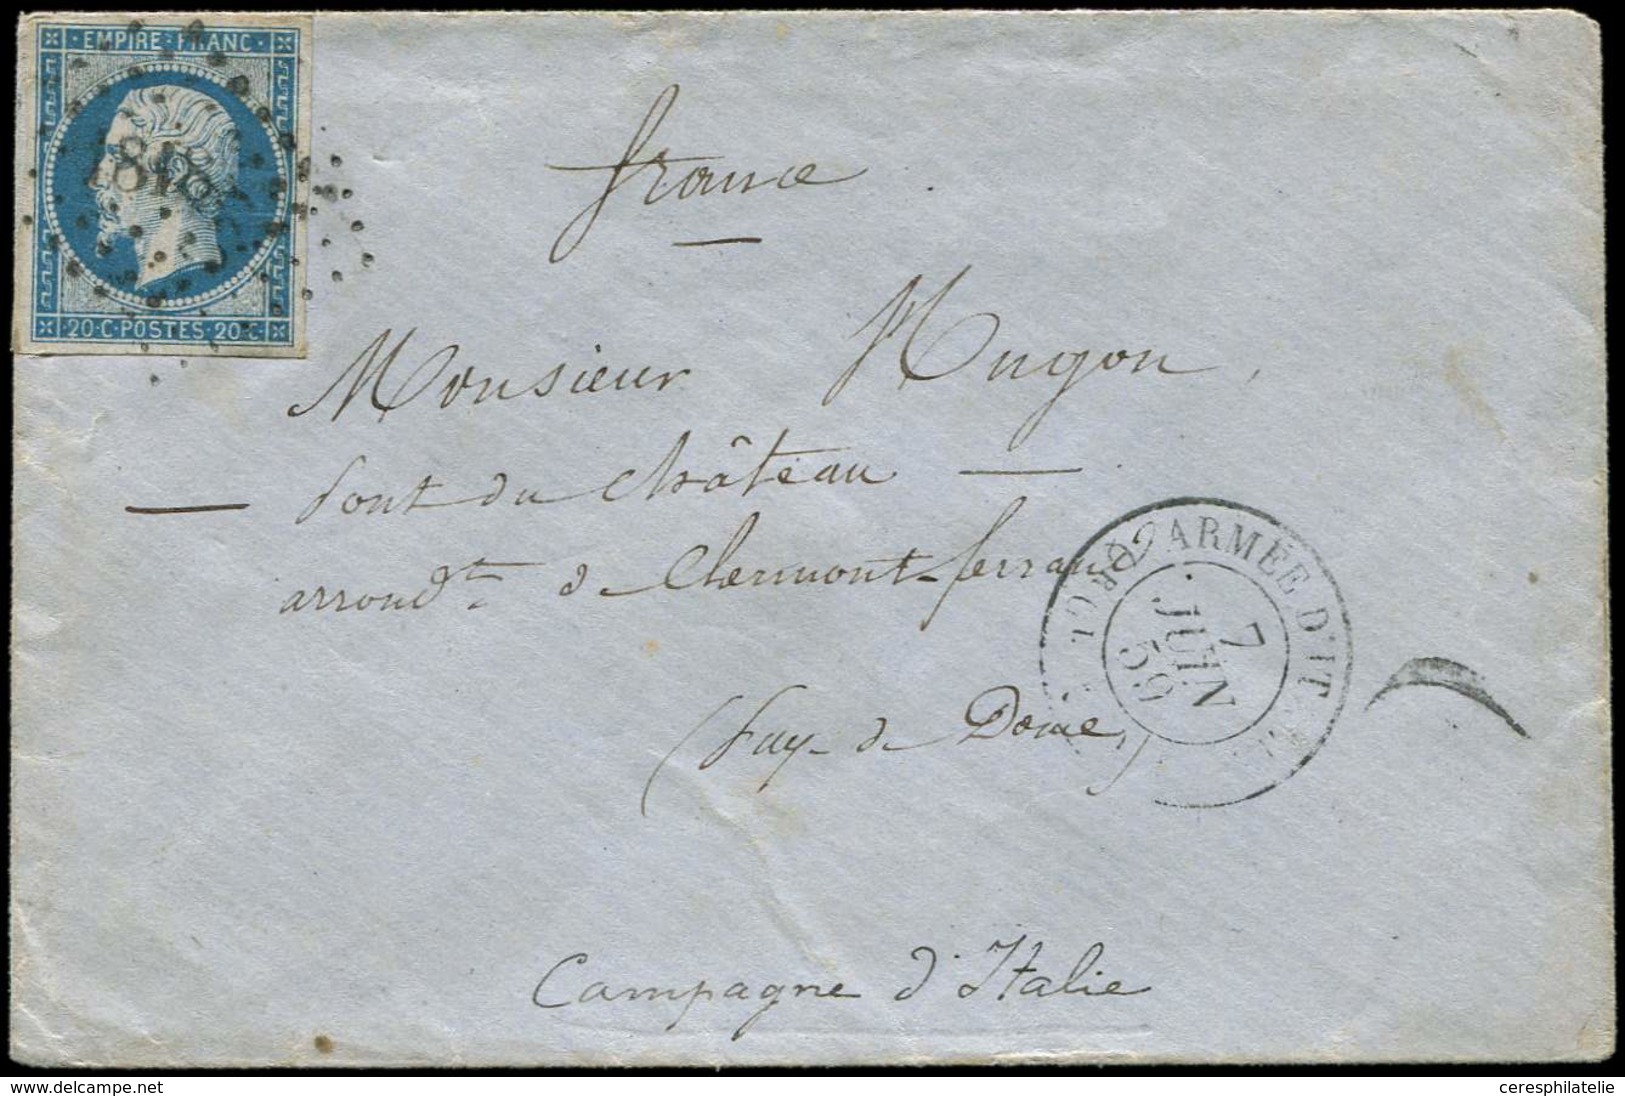 EMPIRE FRANC
20·C·POSTES·20·C
france
Monsieur Hugon,
— Pont du Château —
arrondt de Clermont-ferrand
(Puy-de Dome)
ARMÉE D'IT
7
JUIN
59
Campagne d'Italie
www.delcampe.net
ceresphilatelie